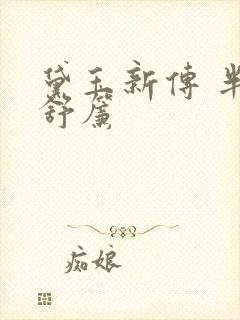 黛玉新傳 半
舒簾
痴娘